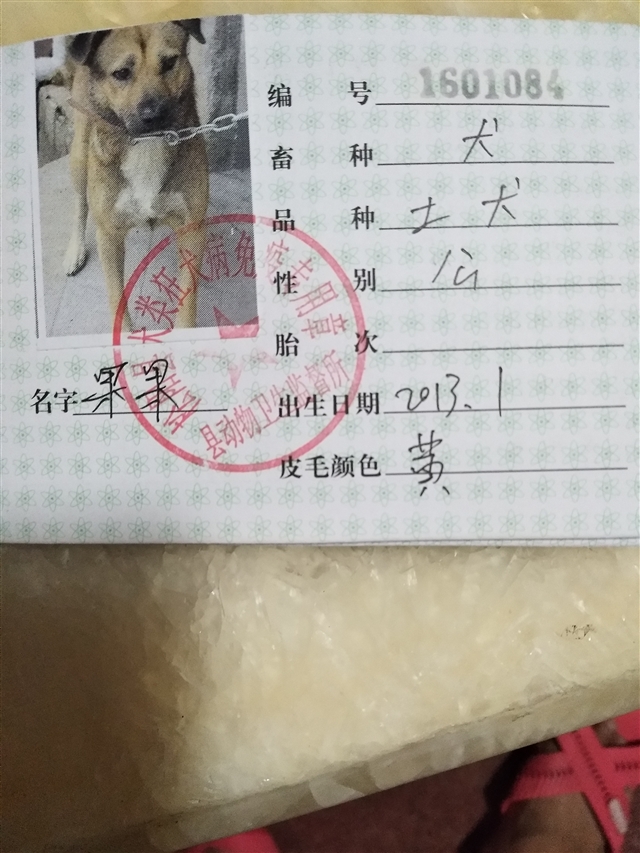 编号 1601084
畜种 犬
品种 土犬
性别 公
胎次
名字 果果
出生日期 2013.1
皮毛颜色 黄
犬类狂犬病免疫专用章
县动物卫生监管所